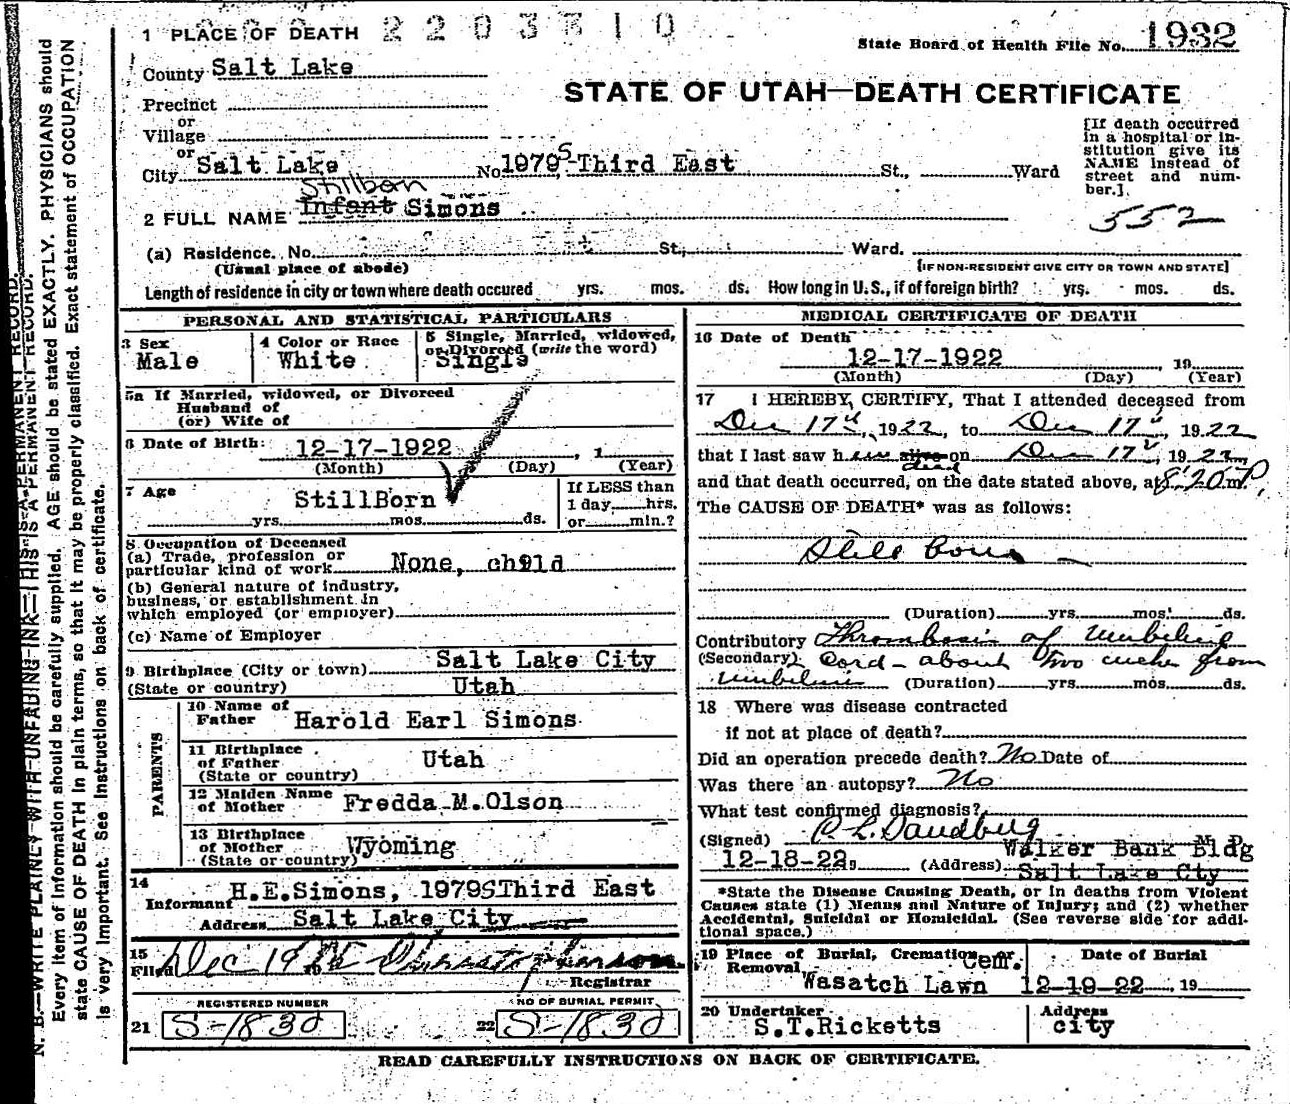 1 PLACE OF DEATH 2203310
State Board of Health File No. 1932
County Salt Lake
STATE OF UTAH—DEATH CERTIFICATE
Precinct
or
Village
or
City Salt Lake No. 1979 S Third East St., Ward
[If death occurred
in a hospital or in-
stitution give its
NAME instead of
street and num-
ber.]
Stillborn
2 FULL NAME Infant Simons
552
(a) Residence. No. St., Ward.
(Usual place of abode) [IF NON-RESIDENT GIVE CITY OR TOWN AND STATE]
Length of residence in city or town where death occured yrs. mos. ds. How long in U.S., if of foreign birth? yrs. mos. ds.
PERSONAL AND STATISTICAL PARTICULARS
3 Sex
Male
4 Color or Race
White
5 Single, Married, widowed,
or Divorced (write the word)
Single
5a If Married, widowed, or Divorced
Husband of
(or) Wife of
6 Date of Birth: 12-17-1922 , 1
(Month) (Day) (Year)
7 Age StillBorn
yrs. mos. ds.
If LESS than
1 day hrs.
or min.?
8 Occupation of Deceased
(a) Trade, profession or
particular kind of work None, child
(b) General nature of industry,
business, or establishment in
which employed (or employer)
(c) Name of Employer
9 Birthplace (City or town) Salt Lake City
(State or country) Utah
PARENTS
10 Name of
Father Harold Earl Simons
11 Birthplace
of Father Utah
(State or country)
12 Maiden Name
of Mother Fredda M. Olson
13 Birthplace
of Mother Wyoming
(State or country)
14
Informant H.E.Simons, 1979 S Third East
Address Salt Lake City
15
Filed Dec 19 Christopherson
Registrar
REGISTERED NUMBER
21 S-1830
NO OF BURIAL PERMIT
22 S-1830
MEDICAL CERTIFICATE OF DEATH
16 Date of Death
12-17-1922 , 19
(Month) (Day) (Year)
17 I HEREBY CERTIFY, That I attended deceased from
Dec 17th, 1922, to Dec 17th, 1922
that I last saw him alive on Dec 17th, 1922,
dead
and that death occurred, on the date stated above, at 8:20 m P.
The CAUSE OF DEATH* was as follows:
Still born
(Duration) yrs. mos. ds.
Contributory Thrombosis of umbilical
(Secondary) Cord - about two inches from
umbilicus (Duration) yrs. mos. ds.
18 Where was disease contracted
if not at place of death?
Did an operation precede death? No Date of
Was there an autopsy? No
What test confirmed diagnosis?
(Signed) C. L. Sandberg M. D.
12-18-22, (Address) Walker Bank Bldg
Salt Lake Cty
*State the Disease Causing Death, or in deaths from Violent
Causes state (1) Menus and Nature of Injury; and (2) whether
Accidental, Suicidal or Homicidal. (See reverse side for addi-
tional space.)
19 Place of Burial, Cremation or
Removal Cem.
Wasatch Lawn
Date of Burial
12-19-22 , 19
20 Undertaker
S.T.Ricketts
Address
city
READ CAREFULLY INSTRUCTIONS ON BACK OF CERTIFICATE.
N. B.—WRITE PLAINLY WITH UNFADING INK—THIS IS A PERMANENT RECORD.
Every item of information should be carefully supplied. AGE should be stated EXACTLY. PHYSICIANS should
state CAUSE OF DEATH in plain terms, so that it may be properly classified. Exact statement of OCCUPATION
is very important. See instructions on back of certificate.